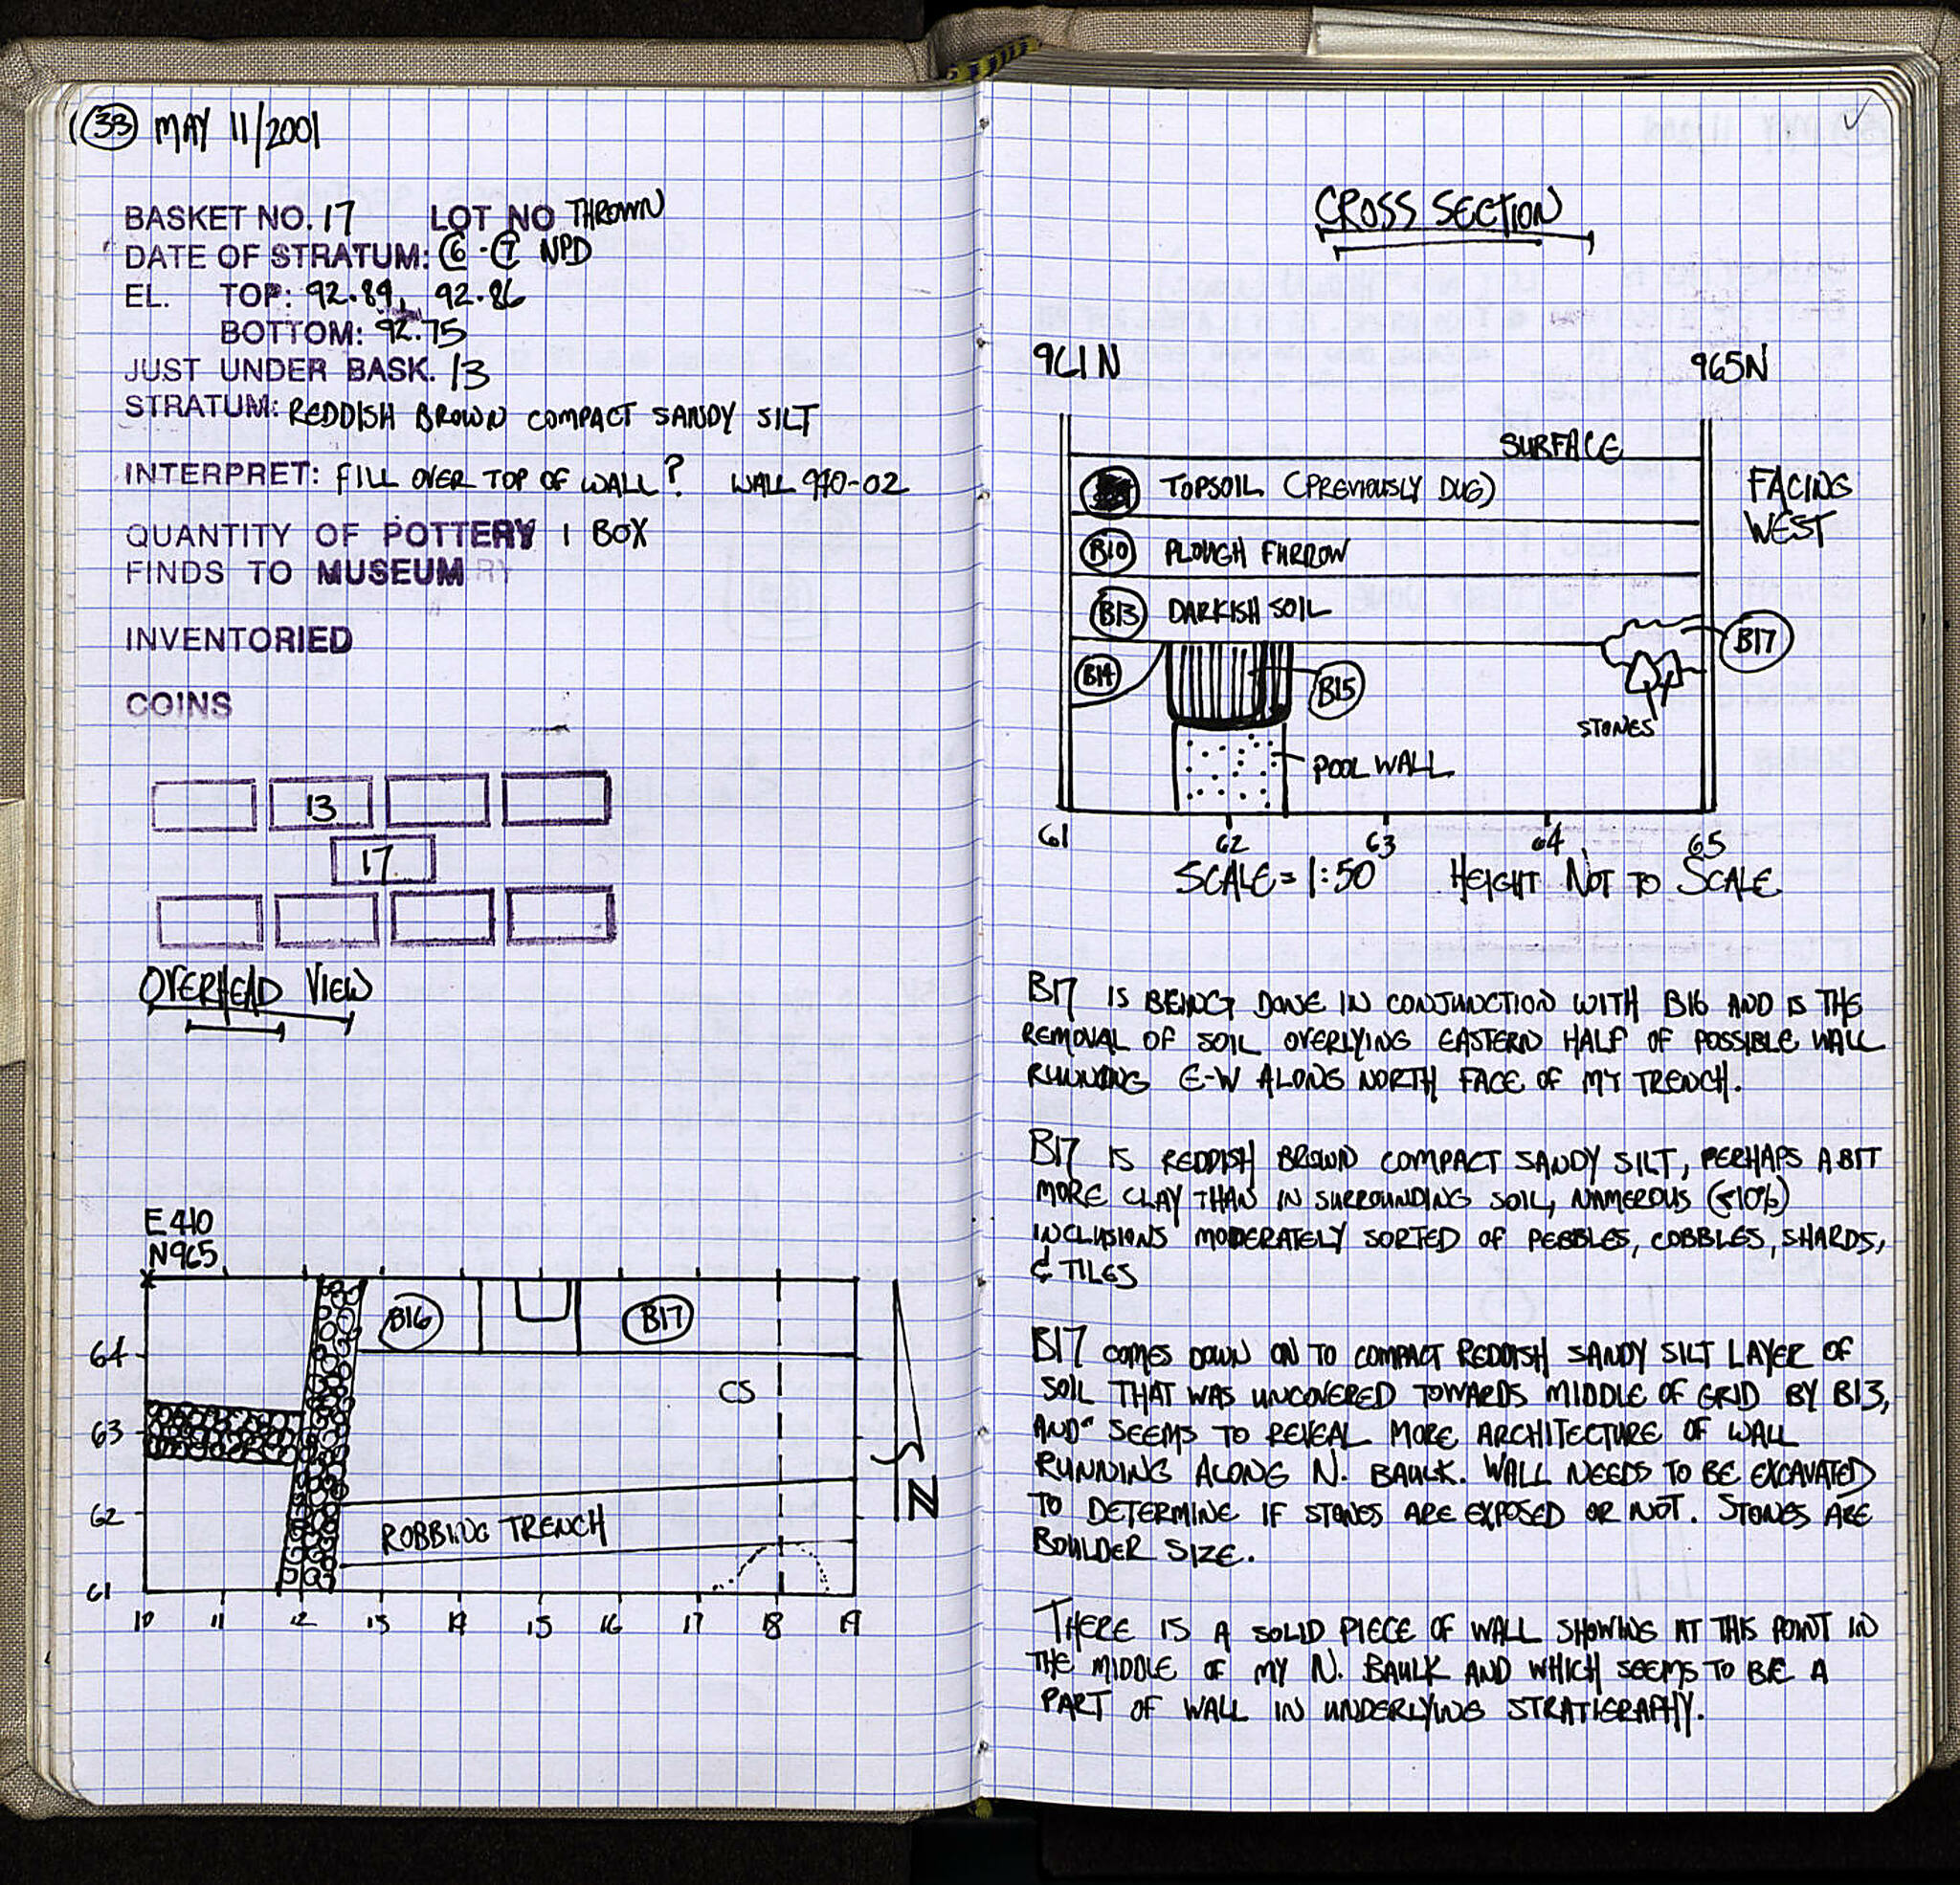 33 MAY 11/2001
BASKET NO. 17 LOT NO THROWN
DATE OF STRATUM: NPD
EL. TOP: 92.89, 92.86
BOTTOM: 92.75
JUST UNDER BASK. 13
STRATUM: REDDISH BROWN COMPACT SANDY SILT
INTERPRET: FILL OVER TOP OF WALL? WALL 990-02
QUANTITY OF POTTERY 1 BOX
FINDS TO MUSEUM
INVENTORIED
COINS
13
17
OVERHEAD VIEW
E410
N965
B16 B17
64
CS
63
62
ROBBING TRENCH
N
61
10 11 12 13 14 15 16 17 18 19
CROSS SECTION
961N 965N
SURFACE
TOPSOIL (PREVIOUSLY DUG)
FACING
WEST
B10 PLOUGH FURROW
B13 DARKISH SOIL
B17
B14
B15
STONES
POOL WALL
61 62 63 64 65
SCALE = 1:50 HEIGHT NOT TO SCALE
B17 IS BEING DONE IN CONJUNCTION WITH B16 AND IS THE
REMOVAL OF SOIL OVERLYING EASTERN HALF OF POSSIBLE WALL
RUNNING E-W ALONG NORTH FACE OF MY TRENCH.
B17 IS REDDISH BROWN COMPACT SANDY SILT, PERHAPS A BIT
MORE CLAY THAN IN SURROUNDING SOIL, NUMEROUS (<10%)
INCLUSIONS MODERATELY SORTED OF PEBBLES, COBBLES, SHARDS,
& TILES
B17 COMES DOWN ON TO COMPACT REDDISH SANDY SILT LAYER OF
SOIL THAT WAS UNCOVERED TOWARDS MIDDLE OF GRID BY B13,
AND SEEMS TO REVEAL MORE ARCHITECTURE OF WALL
RUNNING ALONG N. BAULK. WALL NEEDS TO BE EXCAVATED
TO DETERMINE IF STONES ARE EXPOSED OR NOT. STONES ARE
BOULDER SIZE.
THERE IS A SOLID PIECE OF WALL SHOWING AT THIS POINT IN
THE MIDDLE OF MY N. BAULK AND WHICH SEEMS TO BE A
PART OF WALL IN UNDERLYING STRATIGRAPHY.